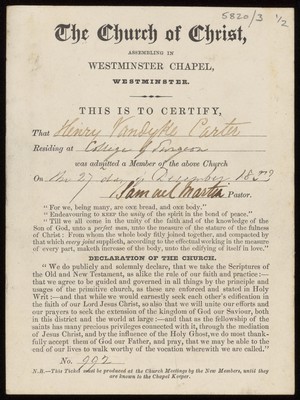 5820/3 1/2
The Church of Christ,
ASSEMBLING IN
WESTMINSTER CHAPEL,
WESTMINSTER.
THIS IS TO CERTIFY,
That Henry Vandyke Carter
Residing at College of Surgeons
was admitted a Member of the above Church
On 27 day of December 1853
Samuel Martin Pastor.
"For we, being many, are one bread, and one body."
"Endeavouring to KEEP the unity of the spirit in the bend of peace."
"Till we all come in the unity of the faith and of the knowledge of the Son of God, unto a perfect man, unto the measure of the stature of the fulness
of Christ: From whom the whole body fitly joined together, and compacted by
that which every joint supplieth, according to the effectual working in the measure
of every part, maketh increase of the body, unto the edifying of itself in love."
DECLARATION OF THE CHURCH.
"We do publicly and solemnly declare, that we take the Scriptures of
the Old and New Testament, as alike the rule of our faith and practice:—
that we agree to be guided and governed in all things by the principle and
usages of the primitive church, as these are enforced and stated in Holy
Writ:—and that while we would earnestly seek each other's edification in
the faith of our Lord Jesus Christ, so also that we will unite our efforts and
our prayers to seek the extension of the kingdom of God our Saviour, both
in this district and the world at large:—and that as the fellowship of the
saints has many precious privileges connected with it, through the mediation
of Jesus Christ, and by the influence of the Holy Ghost, we do most thank-
fully accept them of God our Father, and pray, that we may be able to the
end of our lives to walk worthy of the vocation wherewith we are called."
No. 992
N.B.—This Ticket must be produced at the Church Meetings by the New Members, until they
are known to the Chapel Keeper.